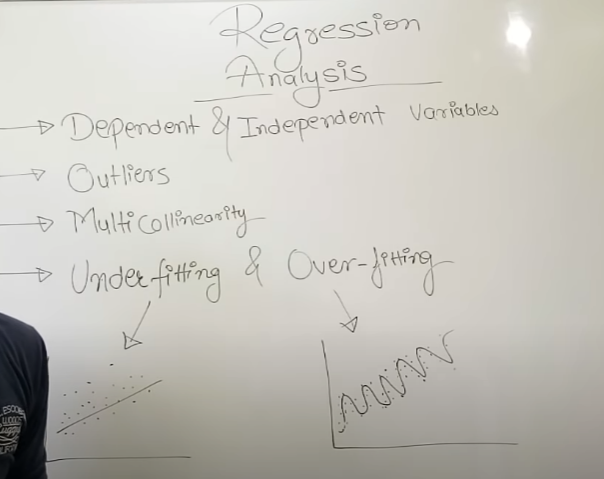 Regression
Analysis
Dependent & Independent Variables
Outliers
Multicollinearity
Underfitting & Over-fitting